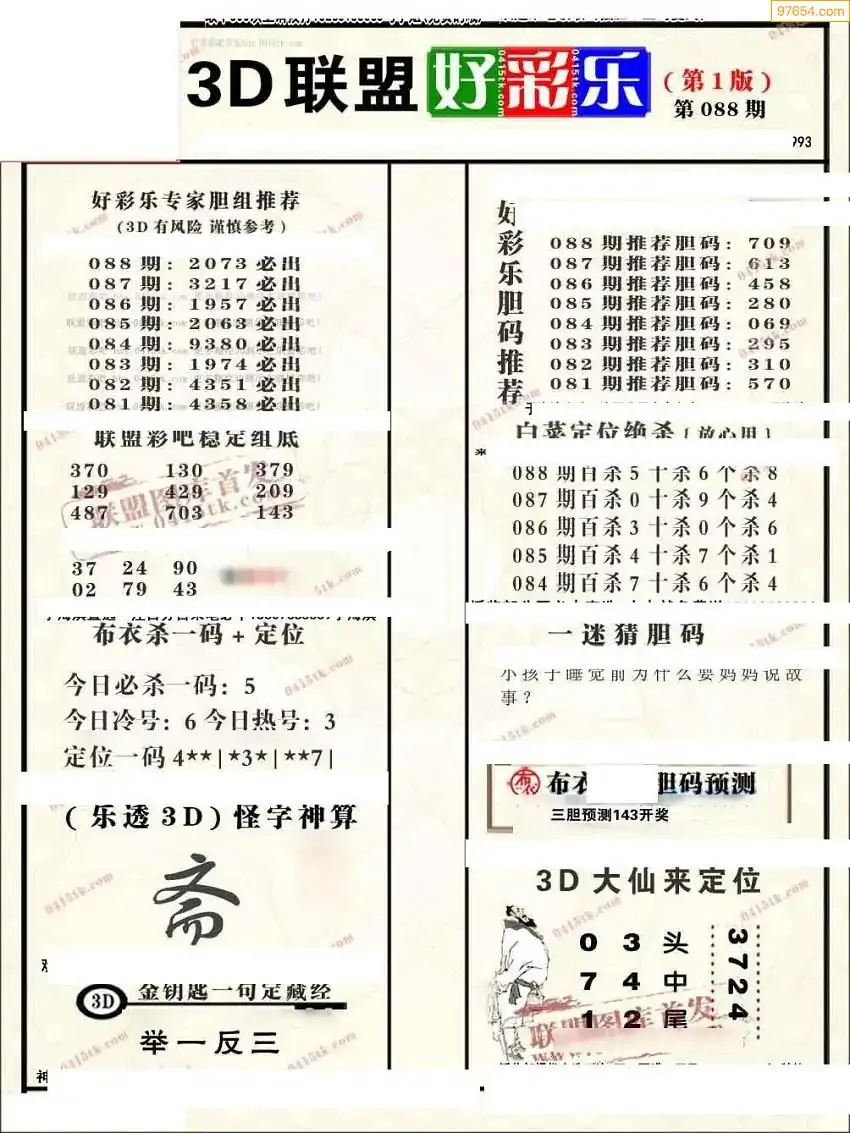 97654.com
3D联盟好彩乐
0415tk.com
0415tk.com
0415tk.com
(第1版)
第088期
993
好彩乐专家胆组推荐
(3D有风险 谨慎参考)
088期: 2073必出
087期: 3217必出
086期: 1957必出
085期: 2063必出
084期: 9380必出
083期: 1974必出
082期: 4351必出
081期: 4358必出
联盟彩吧稳定组底
370 130 379
129 429 209
487 703 143
联盟图库首发
37 24 90
02 79 43
布衣杀一码+定位
今日必杀一码: 5
今日冷号: 6 今日热号: 3
定位一码 4**|*3*|**7|
(乐透3D)怪字神算
斋
3D
金钥匙一句定藏经
举一反三
神
好彩乐胆码推荐
088期推荐胆码: 709
087期推荐胆码: 613
086期推荐胆码: 458
085期推荐胆码: 280
084期推荐胆码: 069
083期推荐胆码: 295
082期推荐胆码: 310
081期推荐胆码: 570
白菜定位绝杀(放心用)
088期百杀5十杀6个杀8
087期百杀0十杀9个杀4
086期百杀3十杀0个杀6
085期百杀4十杀7个杀1
084期百杀7十杀6个杀4
一迷猜胆码
小孩子睡觉前为什么要妈妈说故
事?
布衣 胆码预测
三胆预测143开奖
3D大仙来定位
0 3 头
7 4 中
1 2 尾
3724
联盟图库首发
0415tk.com